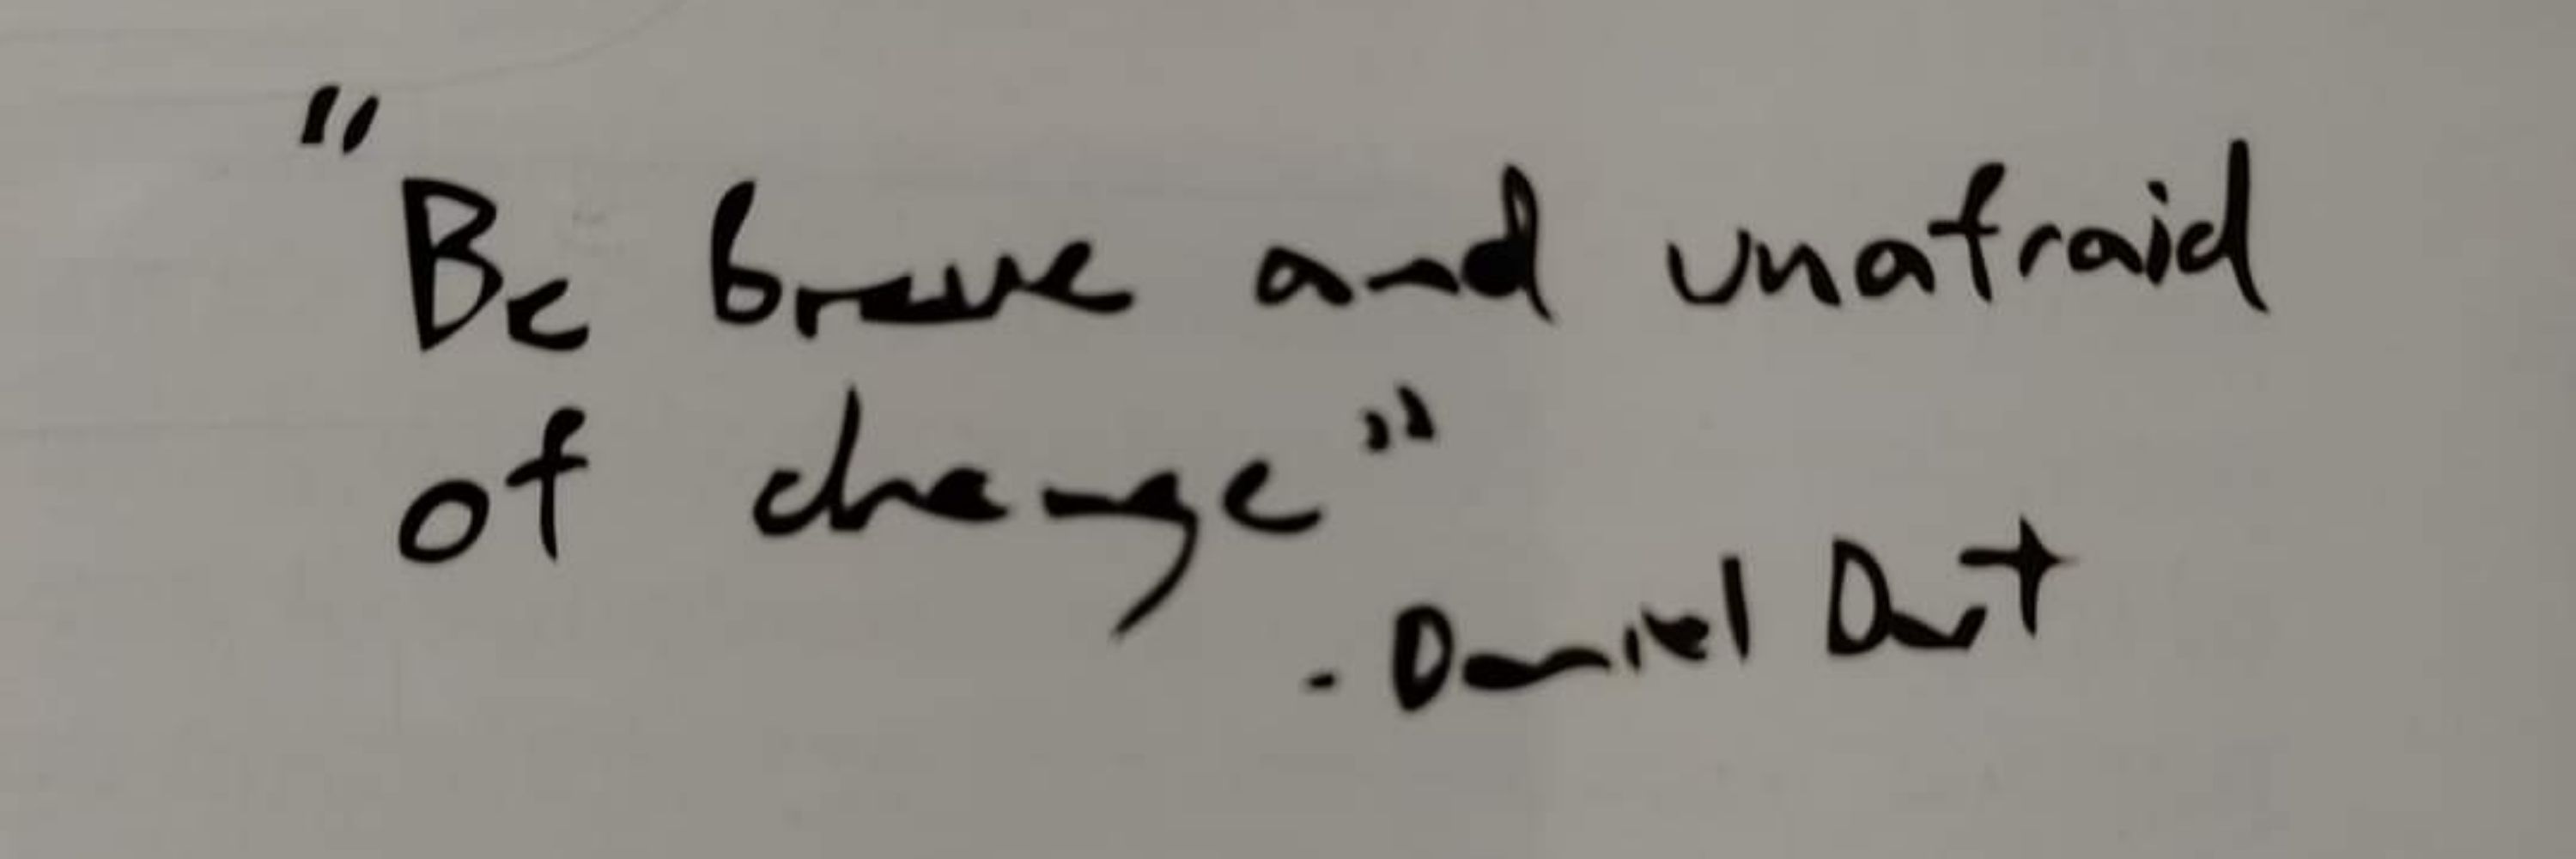 "Be brave and unafraid
of change"
- Daniel Dart